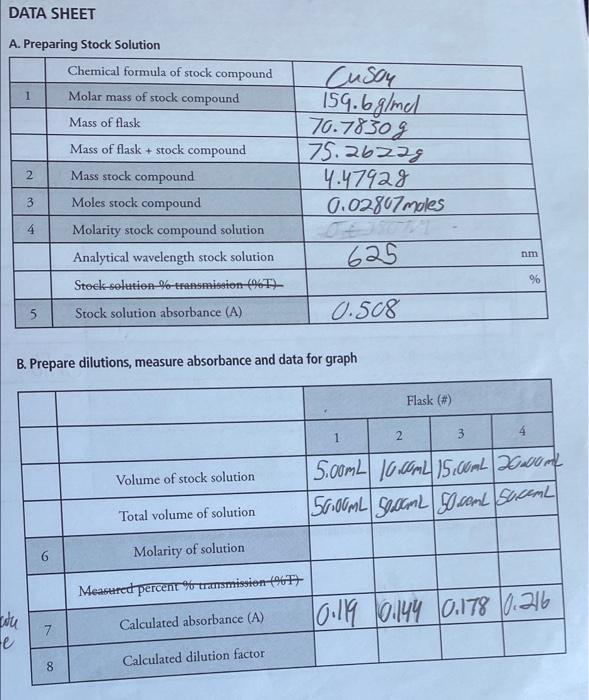 DATA SHEET
A. Preparing Stock Solution
Chemical formula of stock compound CuSO4
1 Molar mass of stock compound 159.6g/mol
Mass of flask 70.7830g
Mass of flask + stock compound 75.2622g
2 Mass stock compound 4.4792g
3 Moles stock compound 0.02807moles
4 Molarity stock compound solution
Analytical wavelength stock solution 625 nm
Stock solution % transmission (%T) %
5 Stock solution absorbance (A) 0.508
B. Prepare dilutions, measure absorbance and data for graph
Flask (#)
1 2 3 4
Volume of stock solution 5.00mL 10.00mL 15.00mL 20.00mL
Total volume of solution 50.00mL 50.00mL 50.00mL 50.00mL
6 Molarity of solution
Measured percent % transmission (%T)
7 Calculated absorbance (A) 0.119 0.144 0.178 0.216
8 Calculated dilution factor